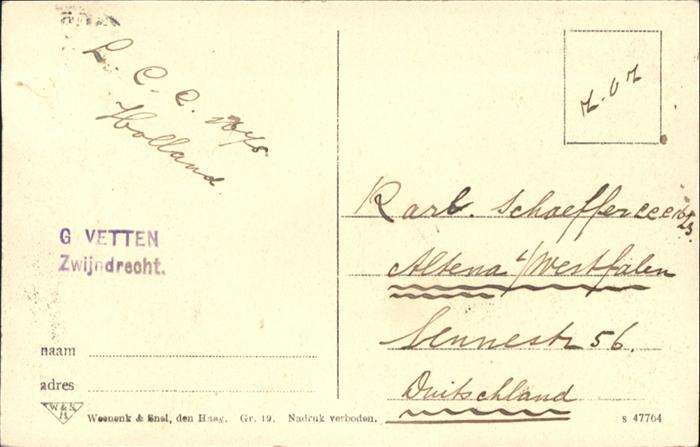 L. C. C. 1675.
Holland
G VETTEN
Zwijndrecht.
naam
adres
W & S
H
Weenenk & Snel, den Haag. Gr. 19. Nadruk verboden.
Z.O.Z
Karl. Schaeffer
Altena i/Westfalen
Nennestr 56.
Duitschland
s 47764